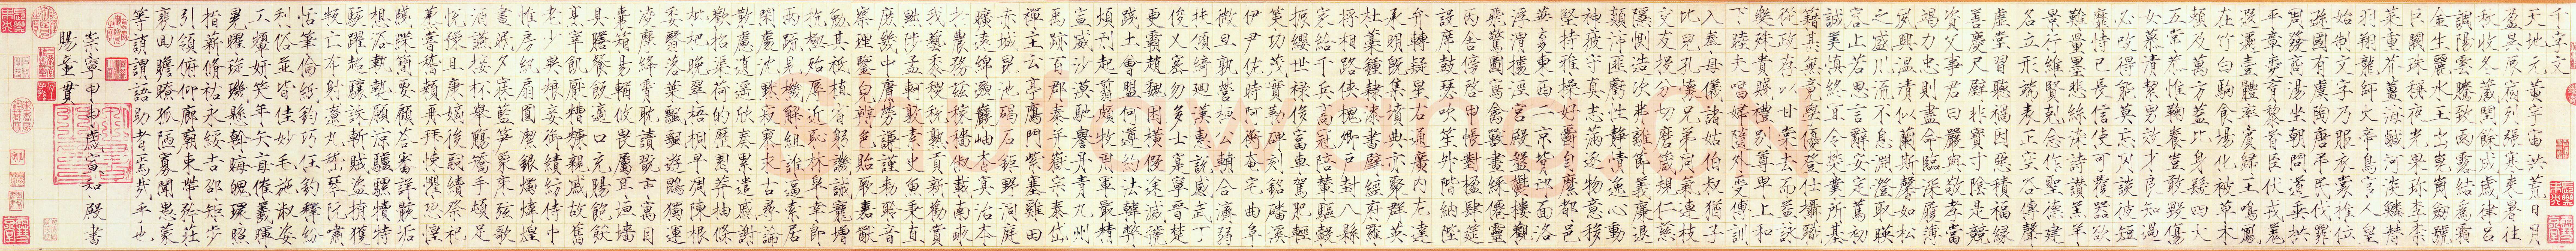 千字文
天地元黃宇宙洪荒日月
盈昃辰宿列張寒來暑往
秋收冬藏閏餘成歲律呂
調陽雲騰致雨露結爲霜
金生麗水玉出崑崗劍號
巨闕珠稱夜光果珍李柰
菜重芥薑海鹹河淡鱗潛
羽翔龍師火帝鳥官人皇
始制文字乃服衣裳推位
遜國有虞陶唐弔民伐罪
周發商湯坐朝問道垂拱
平章愛育黎首臣伏戎羌
遐邇壹體率賓歸王鳴鳳
在竹白駒食場化被草木
賴及萬方蓋此身髮四大
五常恭惟鞠養豈敢毀傷
女慕清潔男效才良知過
必改得能莫忘罔談彼短
靡恃己長信使可覆器欲
難量墨悲絲染詩讚羔羊
景行維賢克念作聖德建
名立形端表正空谷傳聲
虛堂習聽禍因惡積福緣
善慶尺璧非寶寸陰是競
資父事君曰嚴與敬孝當
竭力忠則盡命臨深履薄
夙興溫清似蘭斯馨如松
之盛川流不息淵澄取映
容止若思言辭安定篤初
誠美慎終宜令榮業所基
籍甚無竟學優登仕攝職
從政存以甘棠去而益詠
樂殊貴賤禮別尊卑上和
下睦夫唱婦隨外受傅訓
入奉母儀諸姑伯叔猶子
比兒孔懷兄弟同氣連枝
交友投分切磨箴規仁慈
隱惻造次弗離節義廉退
顛沛匪虧性靜情逸心動
神疲守真志滿逐物意移
堅持雅操好爵自縻都邑
華夏東西二京背邙面洛
浮渭據涇宮殿盤鬱樓觀
飛驚圖寫禽獸畫綵僊靈
丙舍傍啓甲帳對楹肆筵
設席鼓瑟吹笙升階納陛
弁轉疑星右通廣內左達
承明既集墳典亦聚群英
杜藁鍾隸漆書壁經府羅
將相路俠槐卿戶封八縣
家給千兵高冠陪輦驅轂
振纓世祿侈富車駕肥輕
策功茂實勒碑刻銘磻溪
伊尹佐時阿衡奄宅曲阜
微旦孰營桓公輔合濟弱
扶傾綺迴漢惠說感武丁
俊乂密勿多士寔寧晉楚
更霸趙魏困橫假途滅虢
踐土會盟何遵約法韓弊
煩刑起翦頗牧用軍最精
宣威沙漠馳譽丹青九州
禹跡百郡秦并嶽宗泰岱
禪主云亭鴈門紫塞雞田
赤城昆池碣石鉅野洞庭
曠遠綿邈巖岫杳冥治本
於農務茲稼穡俶載南畝
我藝黍稷稅熟貢新勸賞
黜陟孟軻敦素史魚秉直
庶幾中庸勞謙謹敕聆音
察理鑒皃辨色貽厥嘉猷
勉其祗植省躬譏誡寵增
抗極殆辱近恥林皋幸即
兩疏見機解組誰逼索居
閑處沈默寂寥求古尋論
散慮逍遙欣奏累遣慼謝
歡招渠荷的歷園莽抽條
枇杷晚翠梧桐早凋陳根
委翳落葉飄颻遊鵾獨運
凌摩絳霄耽讀翫市寓目
囊箱易輶攸畏屬耳垣墻
具膳餐飯適口充腸飽飫
烹宰飢厭糟糠親戚故舊
老少異糧妾御績紡侍巾
帷房紈扇圓潔銀燭煒煌
晝眠夕寐藍笋象床弦歌
酒讌接杯舉觴矯手頓足
悅豫且康嫡後嗣續祭祀
蒸嘗稽顙再拜悚懼恐惶
牋牒簡要顧答審詳骸垢
想浴執熱願涼驢騾犢特
駭躍超驤誅斬賊盜捕獲
叛亡布射遼丸嵇琴阮嘯
恬筆倫紙鈞巧任釣釋紛
利俗並皆佳妙毛施淑姿
工顰妍笑年矢每催羲暉
晃曜琁璣懸斡晦魄環照
指薪脩祜永綏吉劭矩步
引領俯仰廊廟束帶矜莊
徘徊瞻眺孤陋寡聞愚蒙
等誚謂語助者焉哉乎也
崇寧甲申歲宣和殿書
賜童貫